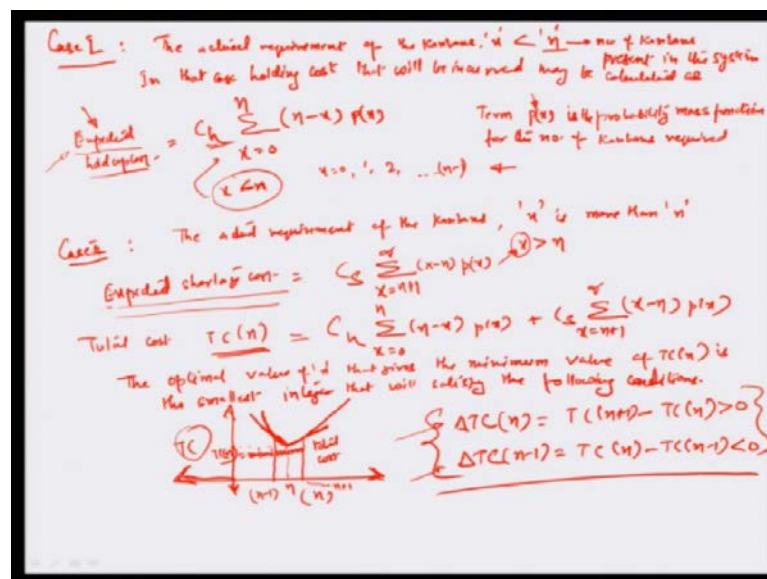 Case I : The actual requirement of the Kanbans, 'x' < 'n' → no of Kanbans
present in the system
In that case holding cost that will be incurred may be calculated as
Expected holding cost = C_h Σ_{x=0}^{n} (n-x) p(x)
Term p(x) is the probability mass function
for the no. of Kanbans required
x < n x=0, 1, 2, ...(n-1) ←
Case II : The actual requirement of the Kanbans, 'x' is more than 'n'
Expected shortage cost = C_s Σ_{x=n+1}^{∞} (x-n) p(x) x > n
Total cost TC(n) = C_h Σ_{x=0}^{n} (n-x) p(x) + C_s Σ_{x=n+1}^{∞} (x-n) p(x)
The optimal value of that gives the minimum value of TC(n) is
the smallest integer that will satisfy the following conditions.
ΔTC(n) = TC(n+1) - TC(n) > 0
ΔTC(n-1) = TC(n) - TC(n-1) < 0
TC
total
cost
(n-1) n (n) n+1